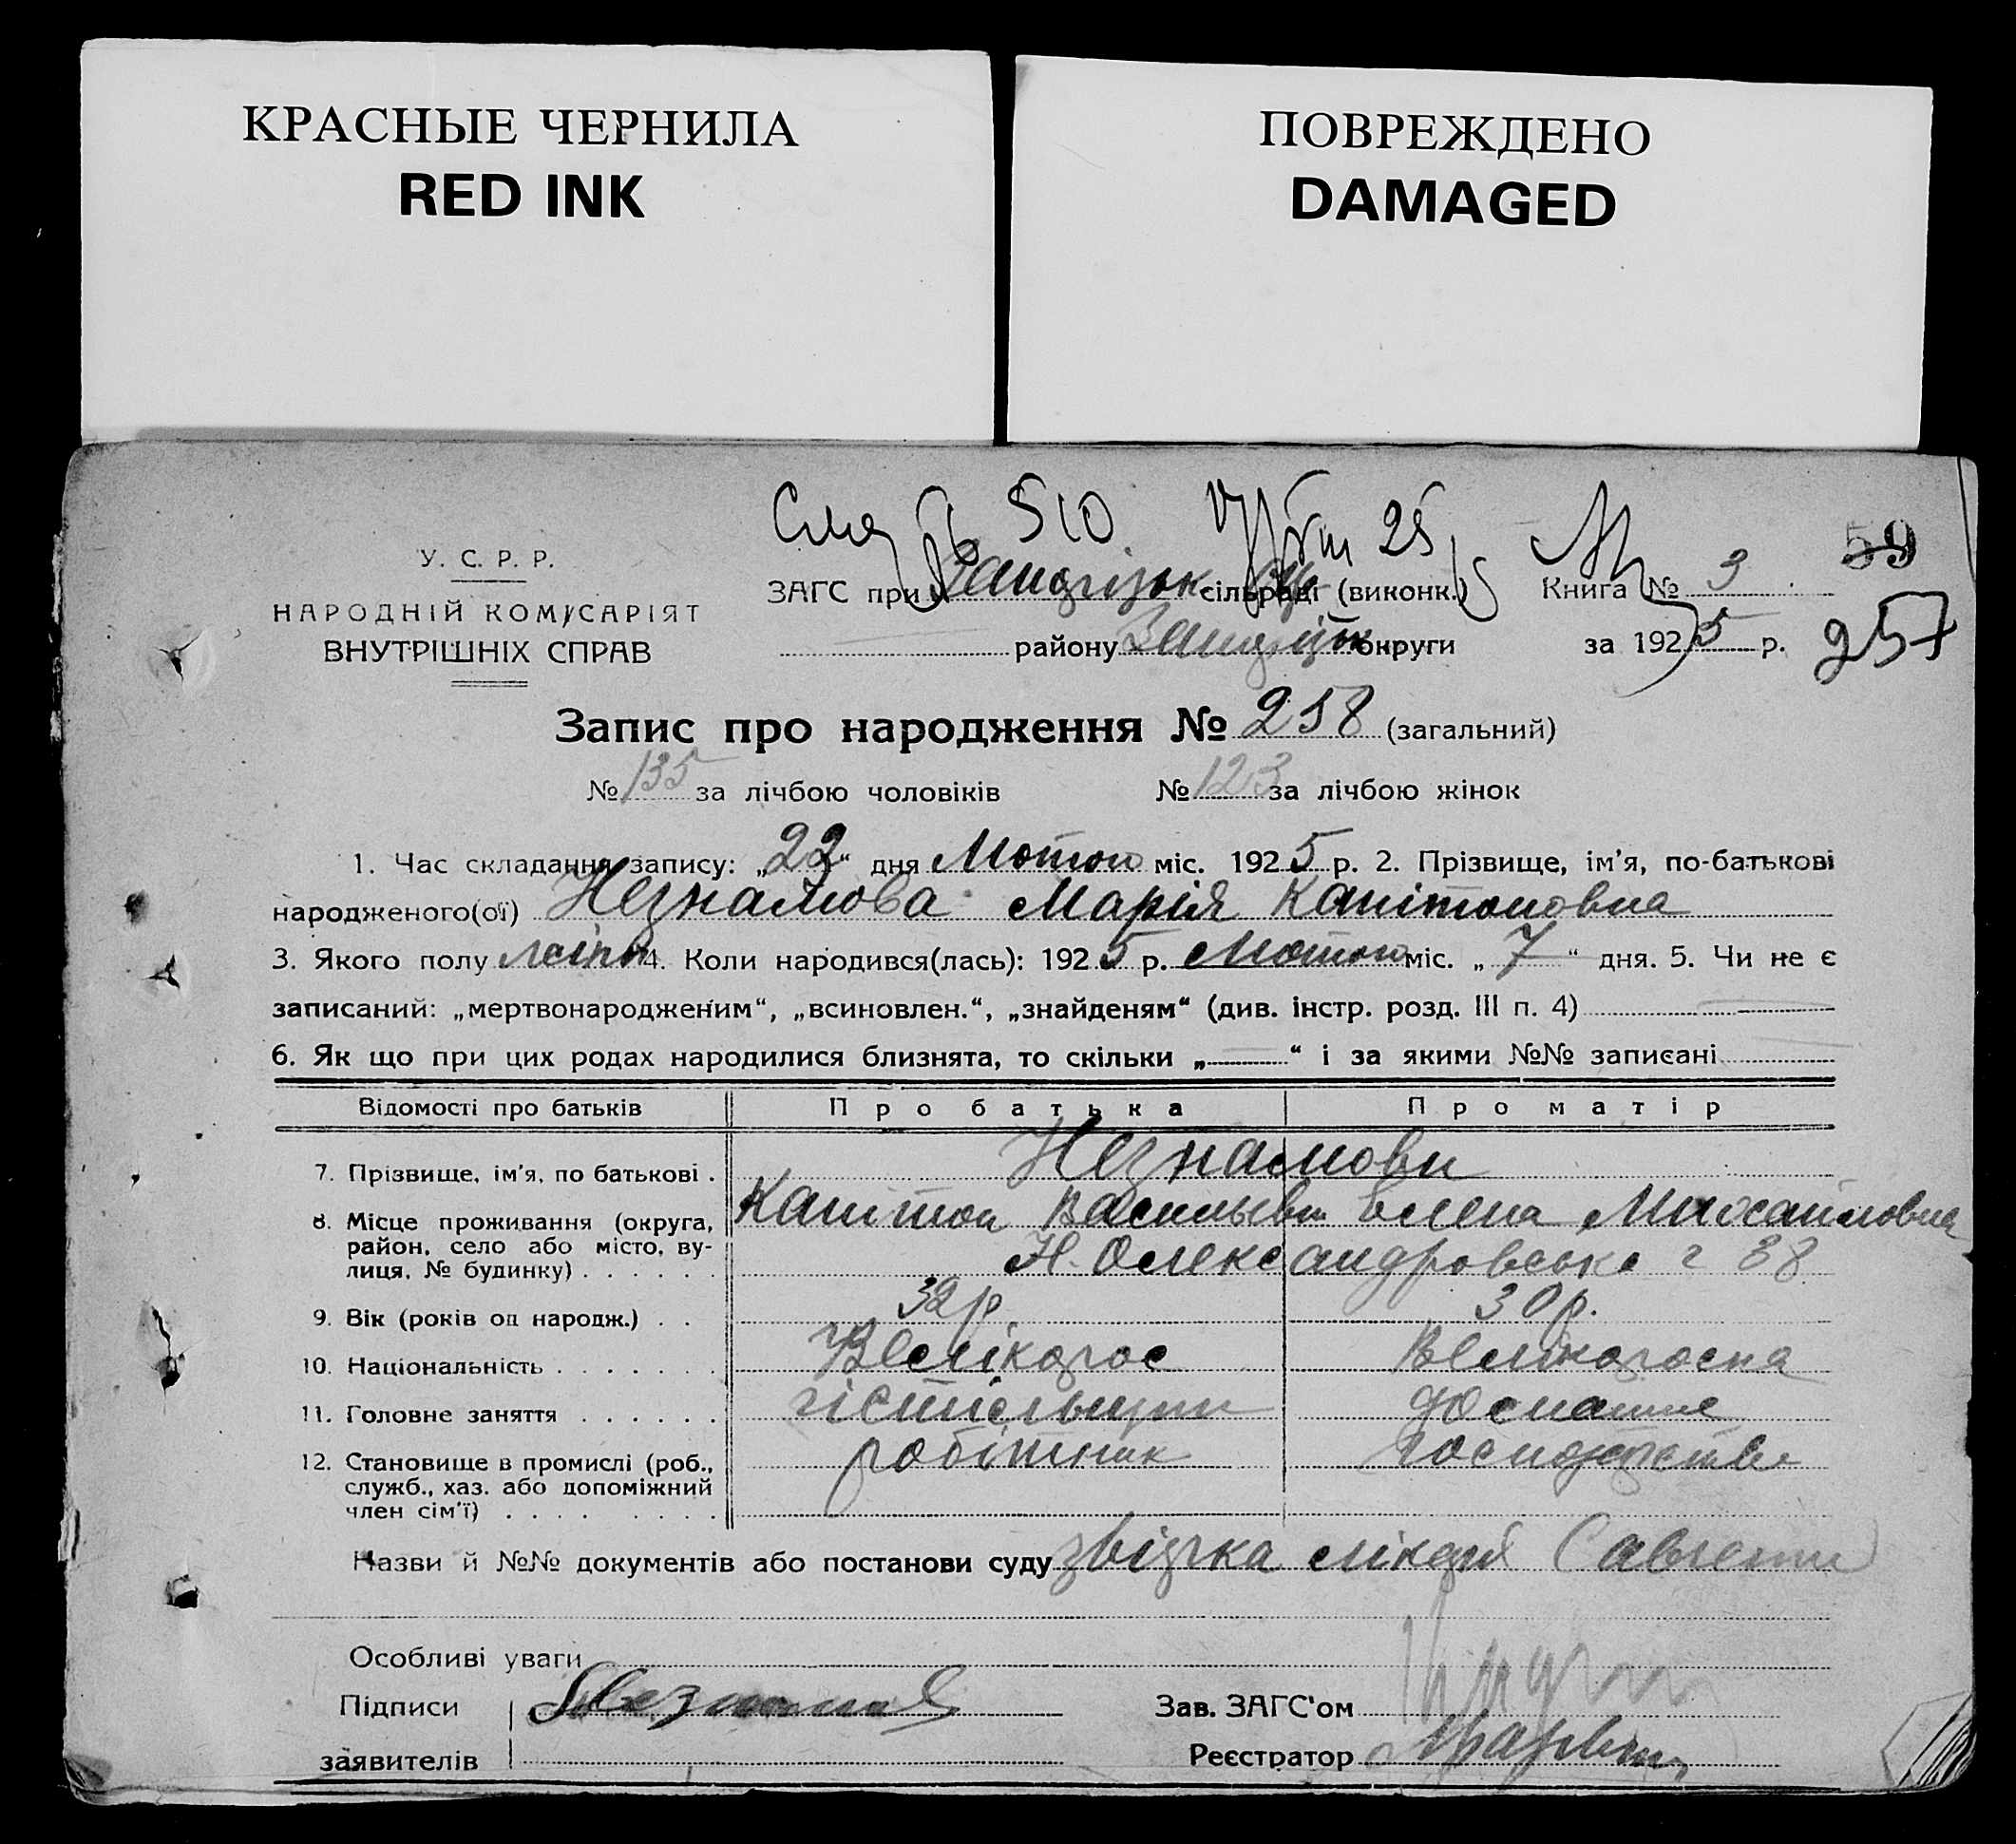 КРАСНЫЕ ЧЕРНИЛА
RED INK
ПОВРЕЖДЕНО
DAMAGED
510 25
59
У. С. Р. Р.
НАРОДНІЙ КОМІСАРІЯТ
ВНУТРІШНІХ СПРАВ
ЗАГС при сільраді (виконк.) Книга № 3
району округи за 1925 р. 257
Запис про народження № 258 (загальний)
№ 135 за лічбою чоловіків № 123 за лічбою жінок
1. Час складання запису: „22“ дня Лютого міс. 1925 р. 2. Прізвище, ім'я, по-батькові
народженого(ої) Незнамова Марія Капітоновна
3. Якого полу жіноч 4. Коли народився(лась): 1925 р. Лютого міс. „7“ дня. 5. Чи не є
записаний: „мертвонародженим“, „всиновлен.“, „знайденям“ (див. інстр. розд. III п. 4)
6. Як що при цих родах народилися близнята, то скільки „—“ і за якими №№ записані
Відомості про батьків Про батька Про матір
7. Прізвище, ім'я, по батькові . Незнамови
Капітон Васильевич Елена Михайловна
8. Місце проживання (округа, район, село або місто, вулиця, № будинку) . . . . . . Н. Олександровська 38
9. Вік (років од народж.) . . 32 р 30 р.
10. Національність . . . . . . . Велікорос Велікороска
11. Головне заняття . . . . . . домашнє
12. Становище в промислі (роб., служб., хаз. або допоміжний член сім'ї) . . . . . . . . робітник господарство
Назви й №№ документів або постанови суду звідка лікаря
Особливі уваги
Підписи
заявителів
Зав. ЗАГС'ом
Реєстратор